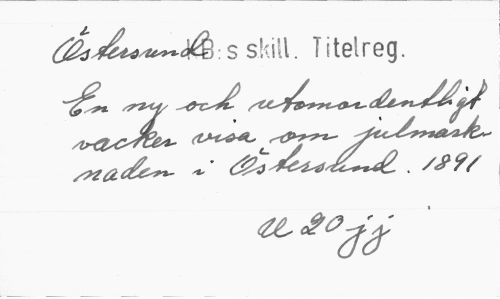 Östersund KB:s skill. Titelreg.
En ny och utomordentligt
vacker visa om julmark-
naden i Östersund. 1891
U 20 jj